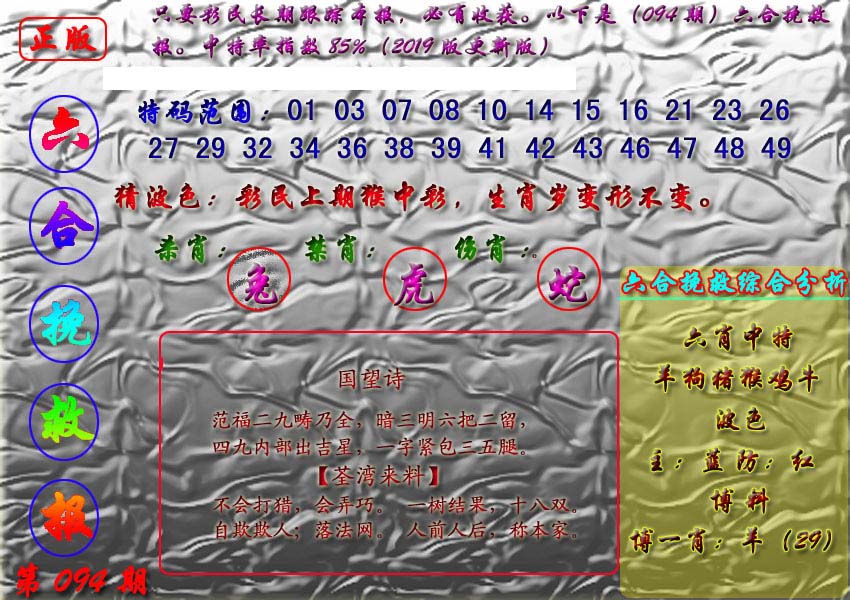 只要彩民长期跟踪本报，必有收获。以下是（094期）六合挽救
报。中特率指数85%（2019版更新版）
正版
六
合
挽
救
报
第094期
特码范围：01 03 07 08 10 14 15 16 21 23 26
27 29 32 34 36 38 39 41 42 43 46 47 48 49
猜波色：彩民上期猴中彩，生肖岁变形不变。
杀肖：兔 禁肖：虎 伤肖：蛇
国望诗
范福二九畴乃全，暗三明六把二留，
四九内部出吉星，一字紧包三五腿。
【荃湾来料】
不会打猎，会弄巧。 一树结果，十八双。
自欺欺人；落法网。 人前人后，称本家。
六合挽救综合分析
六肖中特
羊狗猪猴鸡牛
波色
主：蓝防：红
博料
博一肖：羊（29）